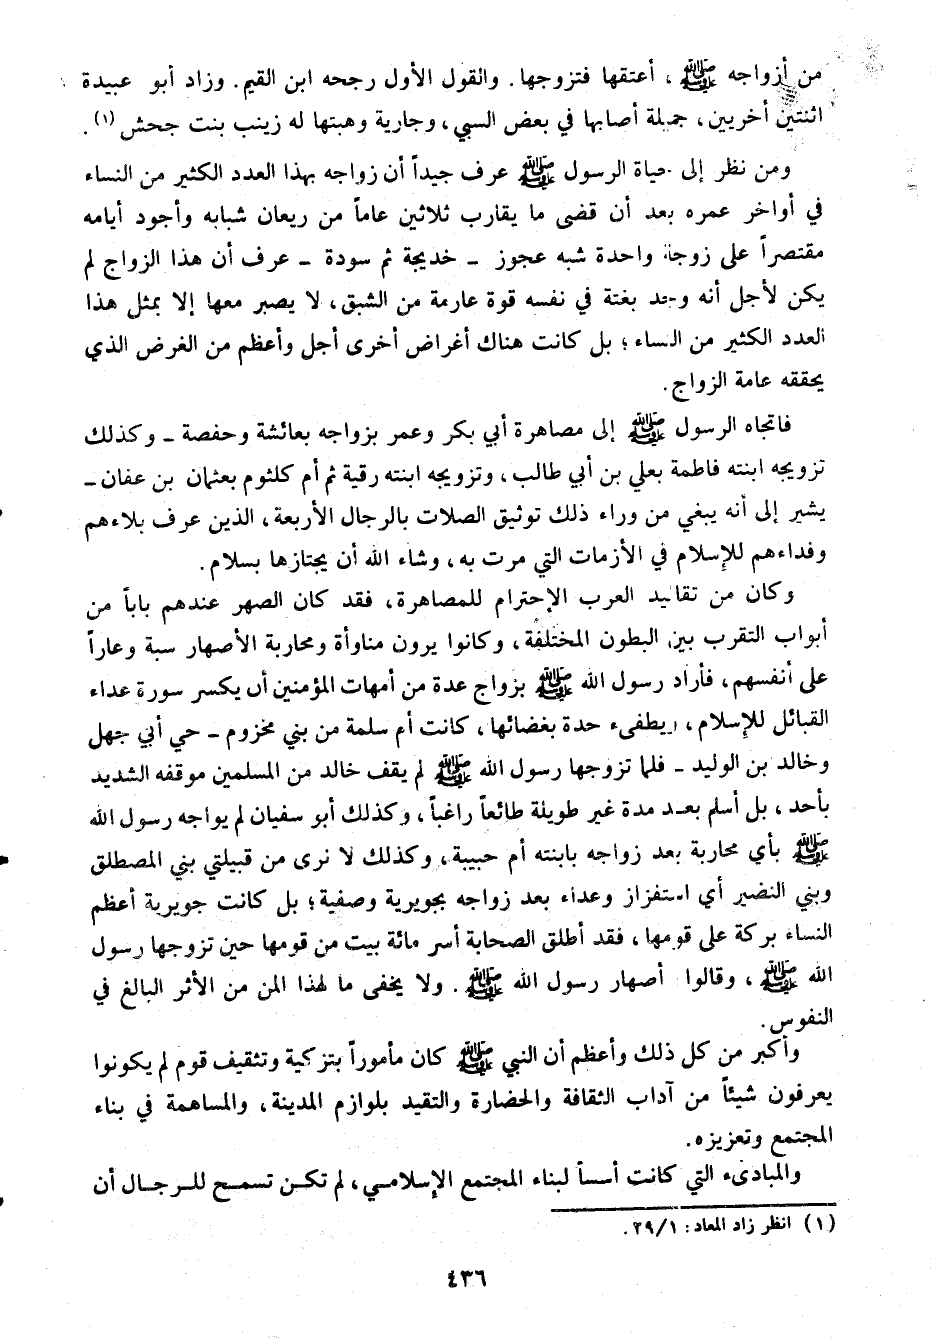 من أزواجه ﷺ، أعتقها فتزوجها. والقول الأول رجحه ابن القيم. وزاد أبو عبيدة
اثنتين أخريين، جميلة أصابها في بعض السبي، وجارية وهبتها له زينب بنت جحش (١).
ومن نظر إلى حياة الرسول ﷺ عرف جيداً أن زواجه بهذا العدد الكثير من النساء
في أواخر عمره بعد أن قضى ما يقارب ثلاثين عاماً من ريعان شبابه وأجود أيامه
مقتصراً على زوجة واحدة شبه عجوز ـ خديجة ثم سودة ـ عرف أن هذا الزواج لم
يكن لأجل أنه وجد بغتة في نفسه قوة عارمة من الشبق، لا يصبر معها إلا بمثل هذا
العدد الكثير من النساء؛ بل كانت هناك أغراض أخرى أجل وأعظم من الغرض الذي
يحققه عامة الزواج.
فاتجاه الرسول ﷺ إلى مصاهرة أبي بكر وعمر بزواجه بعائشة وحفصة ـ وكذلك
تزويجه ابنته فاطمة بعلي بن أبي طالب، وتزويجه ابنته رقية ثم أم كلثوم بعثمان بن عفان ـ
يشير إلى أنه يبغي من وراء ذلك توثيق الصلات بالرجال الأربعة، الذين عرف بلاءهم
وفداءهم للإسلام في الأزمات التي مرت به، وشاء الله أن يجتازها بسلام.
وكان من تقاليد العرب الإحترام للمصاهرة، فقد كان الصهر عندهم باباً من
أبواب التقرب بين البطون المختلفة، وكانوا يرون مناوأة ومحاربة الأصهار سبة وعاراً
على أنفسهم، فأراد رسول الله ﷺ بزواج عدة من أمهات المؤمنين أن يكسر سورة عداء
القبائل للإسلام، ويطفىء حدة بغضائها، كانت أم سلمة من بني مخزوم ـ حي أبي جهل
وخالد بن الوليد ـ فلما تزوجها رسول الله ﷺ لم يقف خالد من المسلمين موقفه الشديد
بأحد، بل أسلم بعد مدة غير طويلة طائعاً راغباً، وكذلك أبو سفيان لم يواجه رسول الله
ﷺ بأي محاربة بعد زواجه بابنته أم حبيبة، وكذلك لا نرى من قبيلتي بني المصطلق
وبني النضير أي استفزاز وعداء بعد زواجه بجويرية وصفية؛ بل كانت جويرية أعظم
النساء بركة على قومها، فقد أطلق الصحابة أسر مائة بيت من قومها حين تزوجها رسول
الله ﷺ، وقالوا أصهار رسول الله ﷺ. ولا يخفى ما لهذا المن من الأثر البالغ في
النفوس.
وأكبر من كل ذلك وأعظم أن النبي ﷺ كان مأموراً بتزكية وتثقيف قوم لم يكونوا
يعرفون شيئاً من آداب الثقافة والحضارة والتقيد بلوازم المدينة، والمساهمة في بناء
المجتمع وتعزيزه.
والمبادىء التي كانت أسساً لبناء المجتمع الإسلامي، لم تكن تسمح للرجال أن
(١) انظر زاد المعاد: ٢٩/١.
٤٣٦